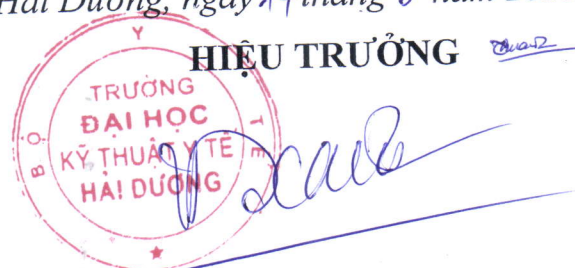 Hải Dương, ngày tháng năm
HIỆU TRƯỞNG
BỘ Y TẾ
TRƯỜNG
ĐẠI HỌC
KỸ THUẬT Y TẾ
HẢI DƯƠNG